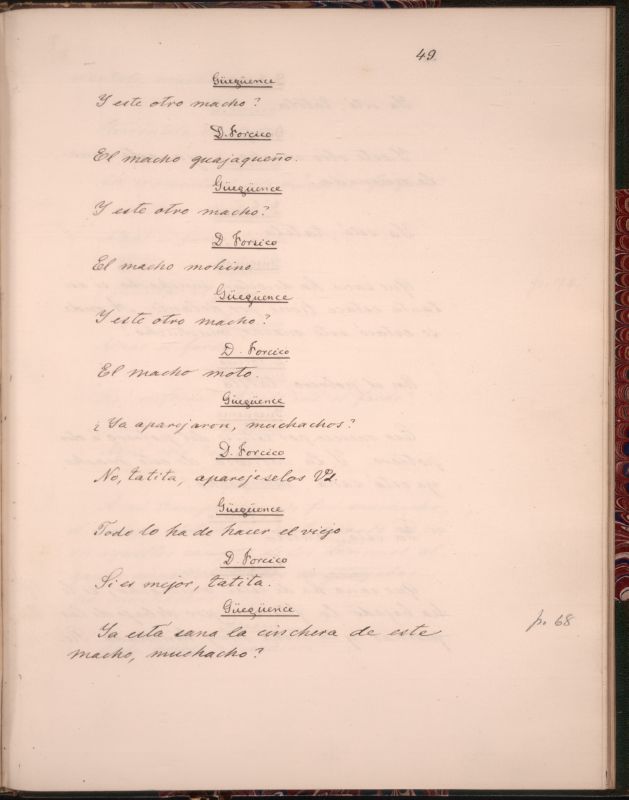 49
Güegüence
Y este otro macho?
D. Forcico
El macho guajaqueño.
Güegüence
Y este otro macho?
D. Forsico
El macho mohino
Güegüence
Y este otro macho?
D. Forcico
El macho moto.
Güegüence
¿Ya aparejaron, muchachos?
D. Forcico
No, tatita, aparejeselos Vd.
Güegüence
Todo lo ha de hacer el viejo
D. Forcico
Si es mejor, tatita.
Güegüence
Ya está sana la cinchera de este
macho, muchacho?
p. 68